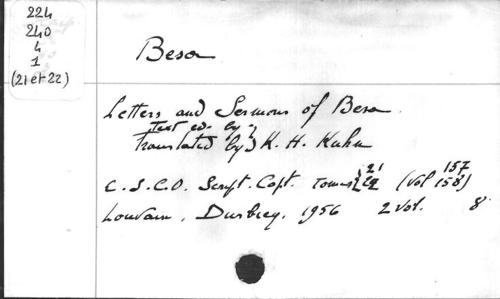 224
240
4
1
(21 et 22)
Besa
Letters and Sermons of Besa
Text ed. by }
translated by } K. H. Kuhn
C.S.C.O. Script. Copt. Tomus { 21 22 (Vol 157 158)
Louvain, Durbecq, 1956 2 vol. 8°